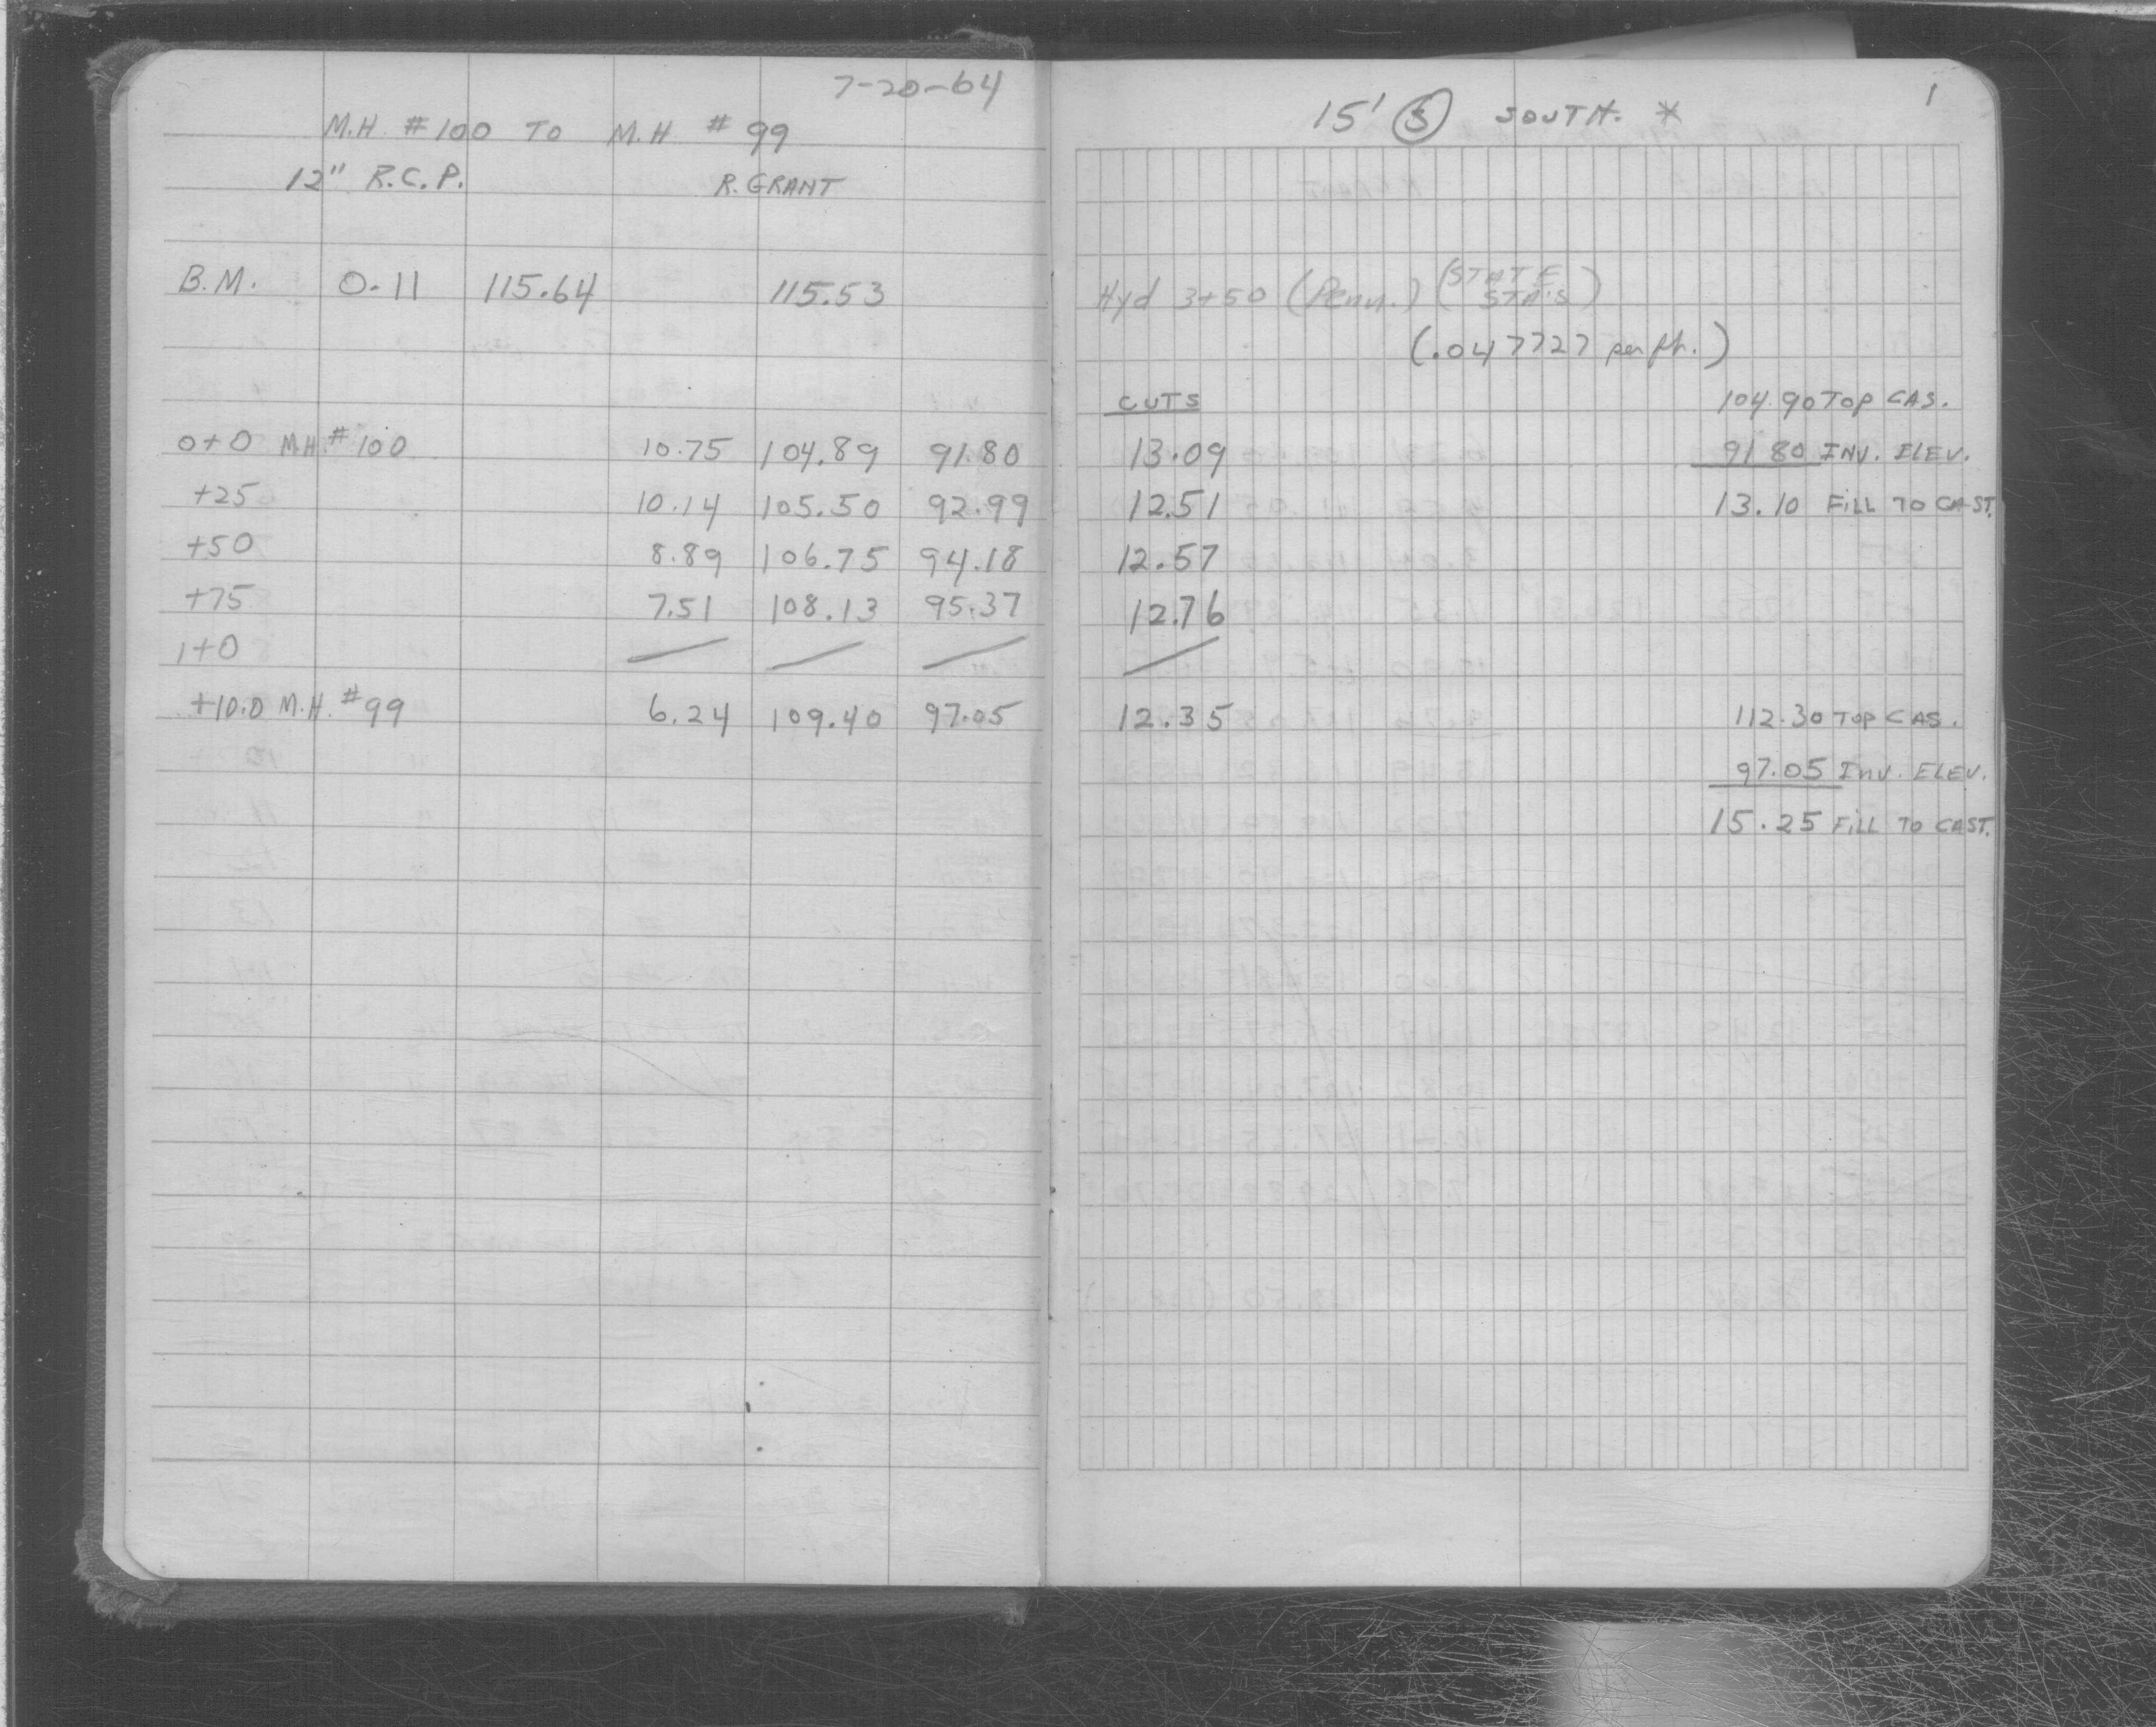 7-20-64
M.H. #100 TO M.H #99
12" R.C.P. R. GRANT
B.M. 0.11 115.64 115.53
0+0 M.H.#100 10.75 104.89 91.80
+25 10.14 105.50 92.99
+50 8.89 106.75 94.18
+75 7.51 108.13 95.37
1+0
+10.0 M.H. #99 6.24 109.40 97.05
1
15' S SOUTH. *
Hyd 3+50 (Penn.) (STATE STA'S)
(.047727 per ft.)
CUTS 104.90 TOP CAS.
13.09 91.80 INV. ELEV.
12.51 13.10 FILL TO CAST.
12.57
12.76
12.35 112.30 TOP CAS.
97.05 INV. ELEV.
15.25 FILL TO CAST.